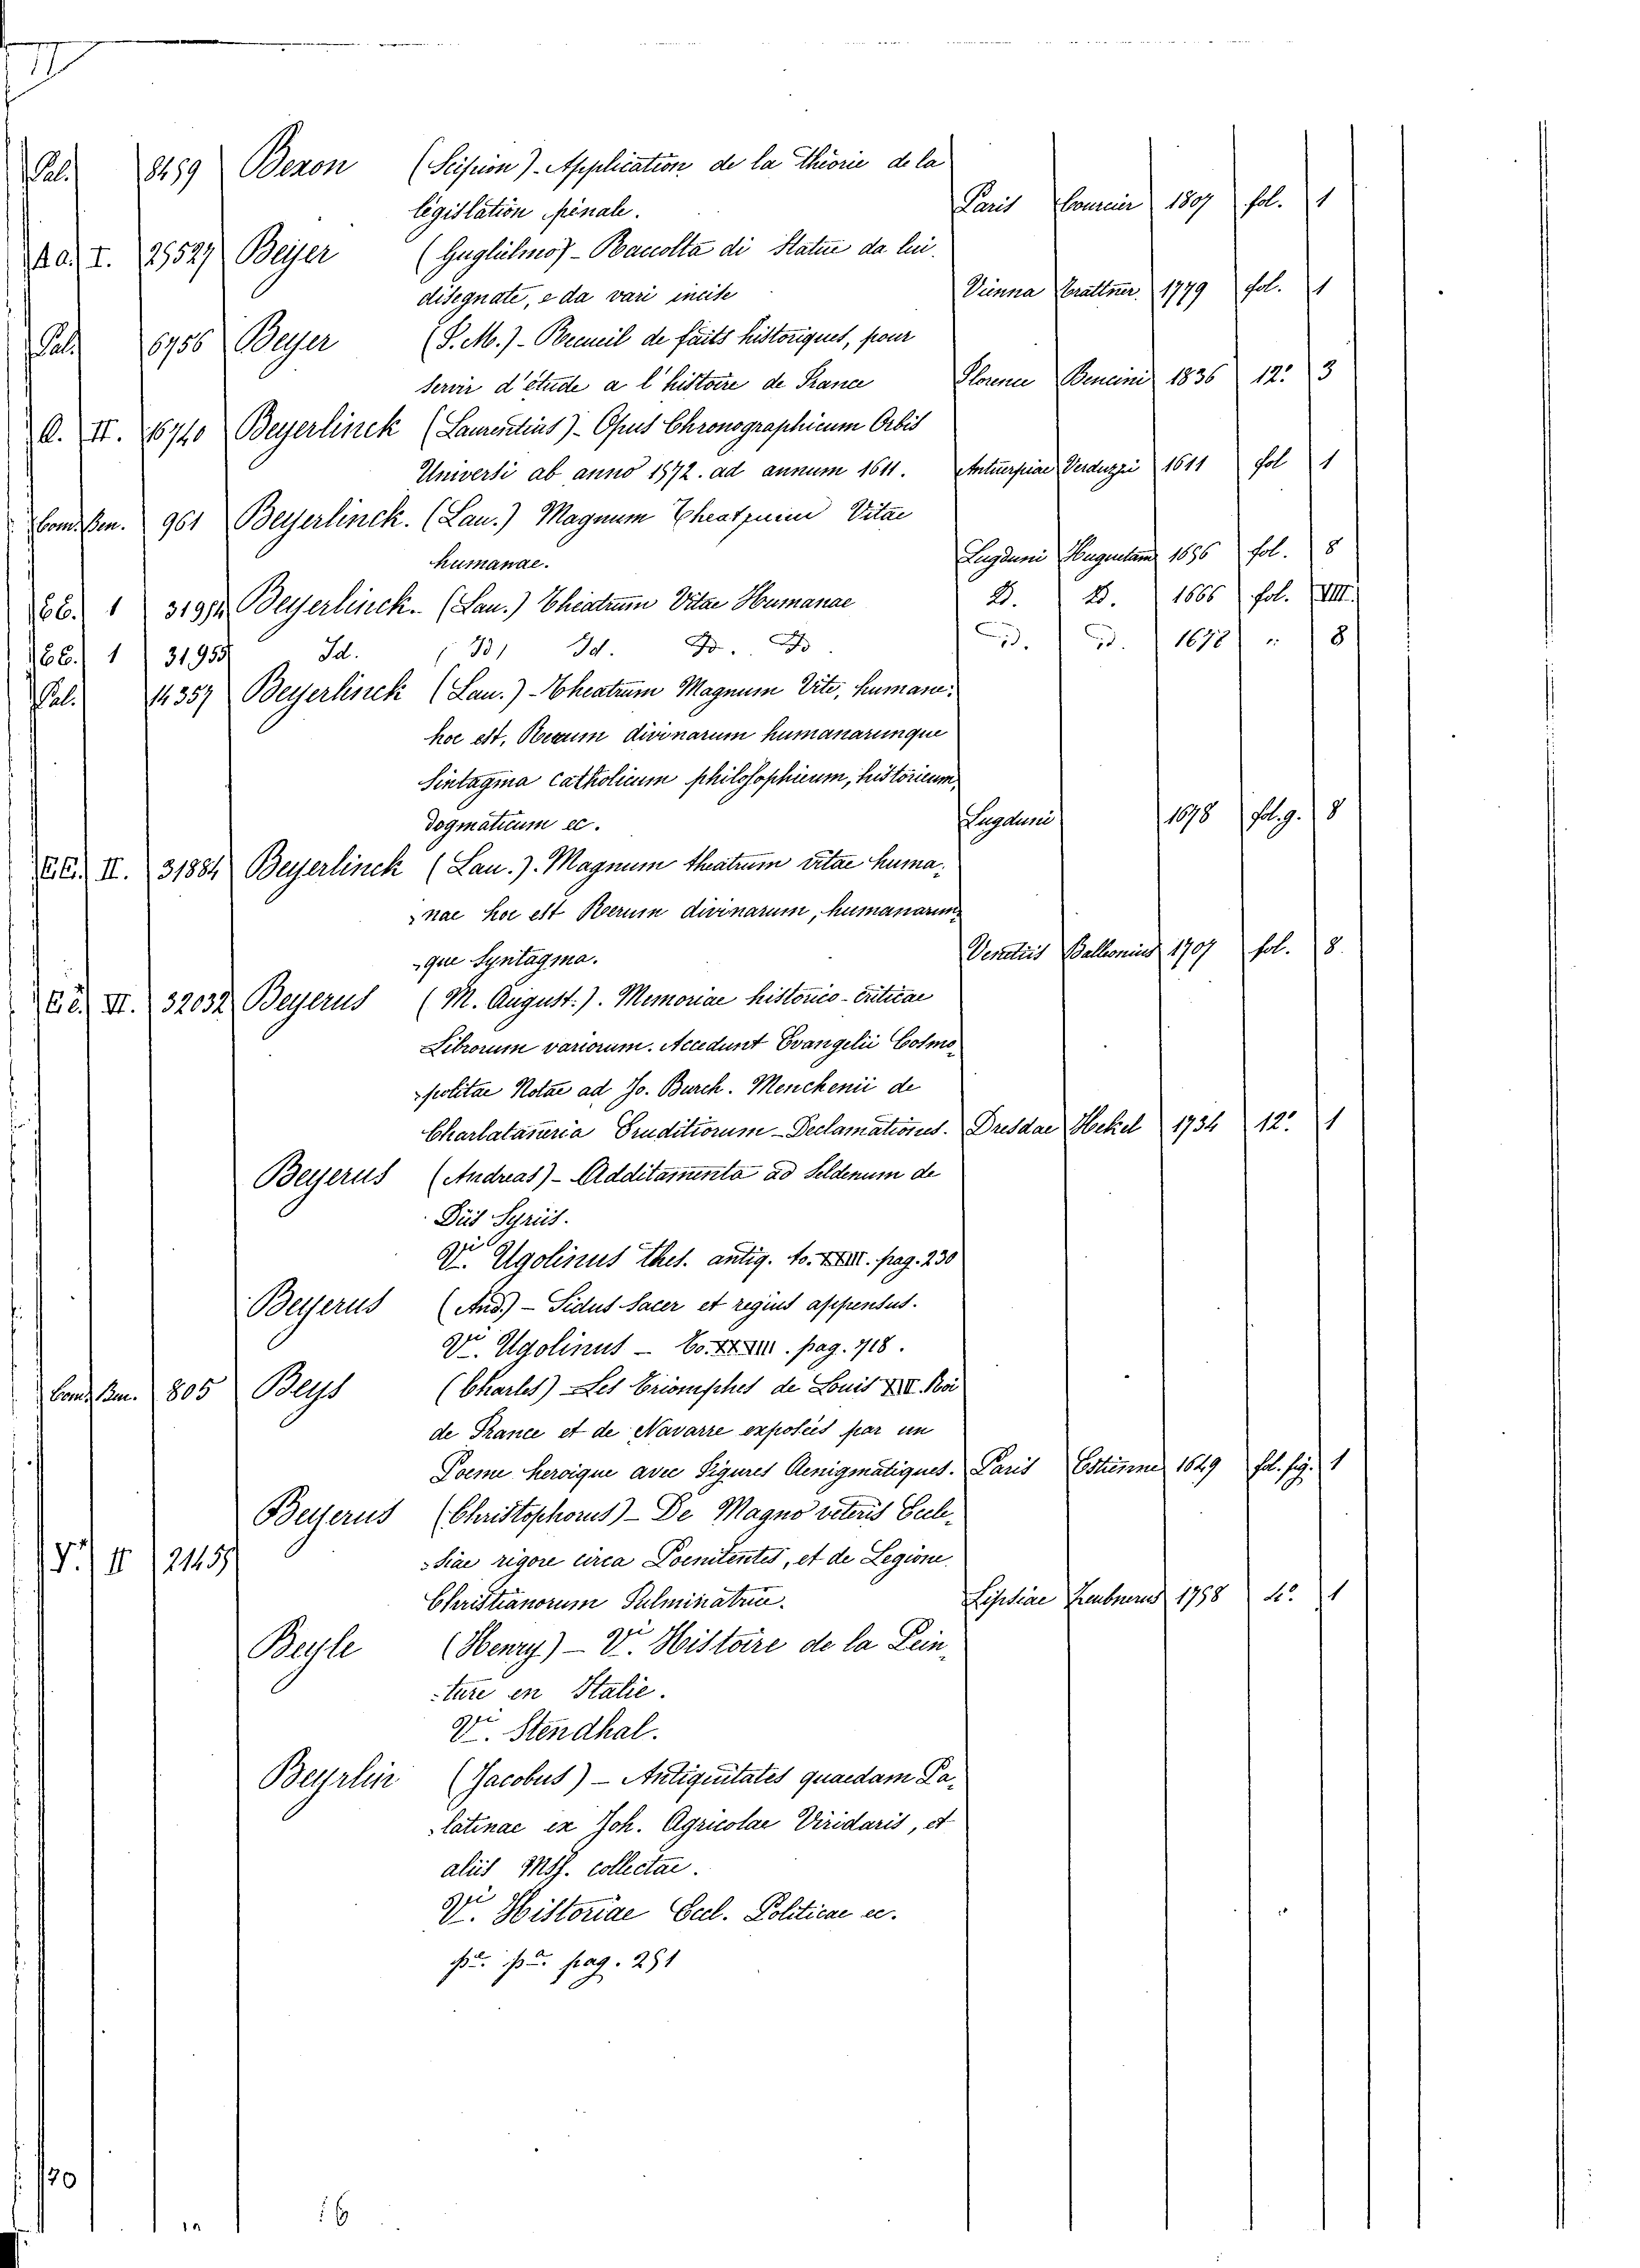 Pal. 8459 Bexon (Scipion) - Application de la Théorie de la
législation pénale. Paris Courcier 1807 fol. 1
A a. I. 25527 Beyer (Guglielmo) - Raccolta di Statue da lui
disegnate, e da vari incise Vienna Trattner 1779 fol. 1
Pal. 6756 Beyer (S. M.) - Recueil de faits historiques, pour
servir d'étude a l'histoire de France Florence Bencini 1836 12.° 3
A. II. 16740 Beyerlinck (Laurentius) - Opus Chronographicum Orbis
Universi ab anno 1572. ad annum 1611. Antuerpiae Verduzzi 1611 fol 1
961 Beyerlinck. (Lau.) Magnum Theatrum Vitae
humanae. Lugduni Huguetan 1656 fol. 8
BB. 1 31954 Beyerlinck. (Lau.) Theatrum Vitae Humanae D. D. 1666 fol. VIII.
BB. 1 31955 Id. Id. D. D. 1678 " 8
Pal. 14357 Beyerlinck (Lau.) - Theatrum Magnum Vite, humane:
hoc est, Rerum divinarum humanarumque
Sintagma catholicum philosophicum, historicum,
dogmaticum ec. Lugduni 1678 fol. g. 8
II. 31884 Beyerlinck (Lau.). Magnum theatrum vitae huma-
-nae hoc est Rerum divinarum, humanarum-
-que Syntagma. Venetiis Balleonius 1707 fol. 8
II. 32032 Beyerus (M. August.). Memoriae historico-criticae
Librorum variorum. Accedunt Evangelii Cosmo-
-politae Notae ad Jo. Burch. Menckenii de
Charlataneria Eruditiorum - Declamationes. Dresdae Hekel 1734 12.° 1
Beyerus (Andreas) - Additamenta ad Seldenum de
Diis Syriis.
Vi. Ugolinus thes. antiq. to. XXIII. pag. 230
Beyerus (And.) - Sidus Sacer et regius appensus.
Vi. Ugolinus - to. XXVIII. pag. 718.
805 Beys (Charles) - Les Triomphes de Louis XIII. Roi
de France et de Navarre exposées par un
Poeme heroique avec Figures Aenigmatiques. Paris Estienne 1649 fol. fig. 1
Beyerus (Christophorus) - De Magno veteris Eccle-
V. II 21457 -siae rigore circa Poenitentes, et de Legione
Christianorum Fulminatrice. Lipsiae Teubnerus 1758 4.° 1
Beyle (Henry) - Vi. Histoire de la Pein-
-ture en Italie.
Vi. Stendhal.
Beyrlin (Jacobus) - Antiquitates quaedam Pa-
-latinae ex Joh. Agricolae Viridaris, et
aliis MSS. collectae.
Vi. Historiae Eccl. Politicae ec.
pag. 251